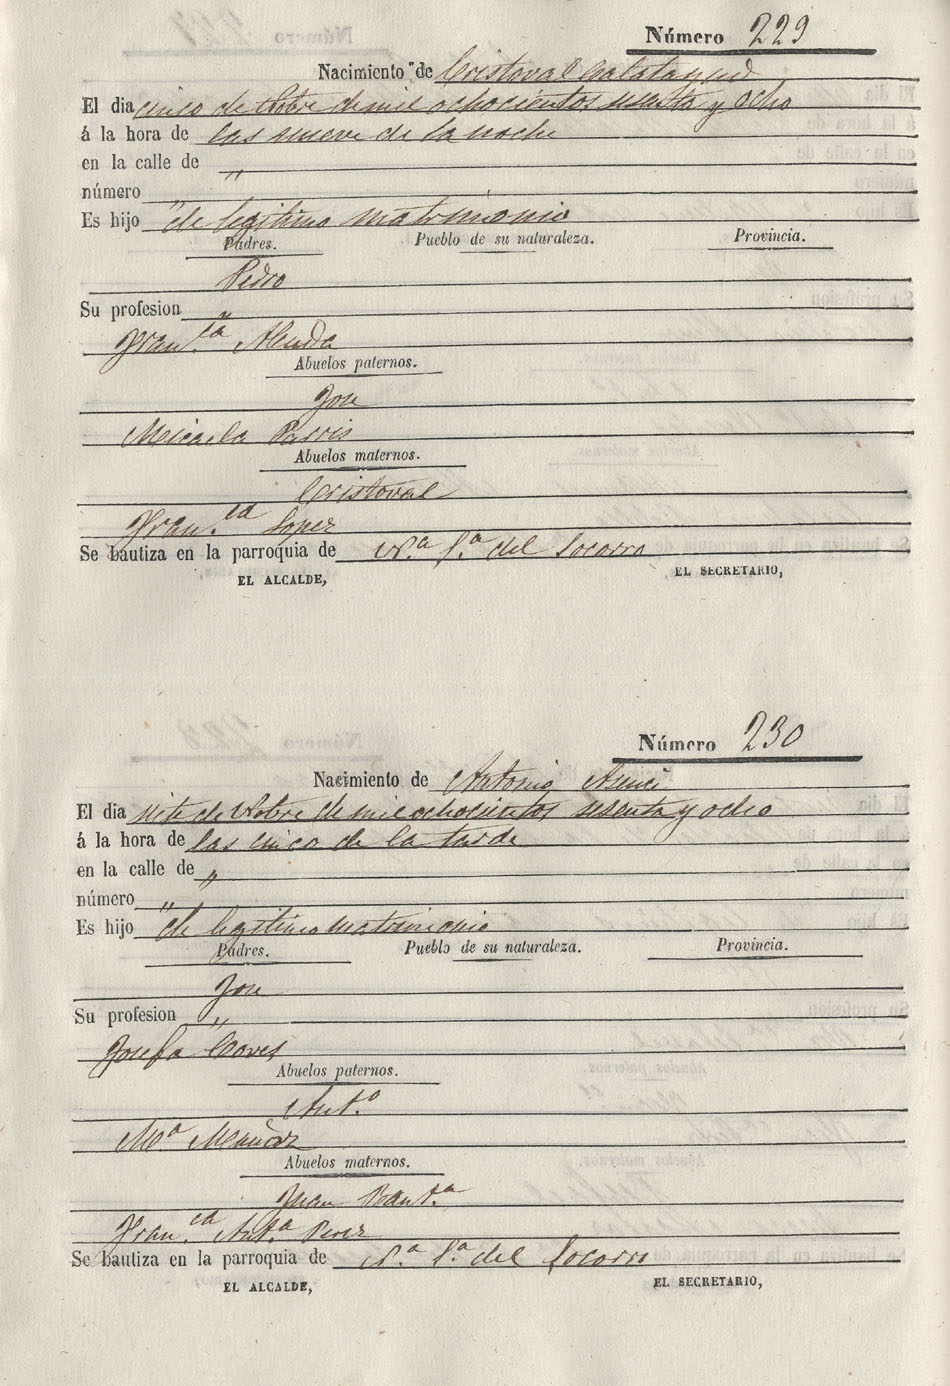 Número 229
Nacimiento de Cristoval Calatayud
El dia cinco de Obre de mil ochocientos sesenta y ocho
á la hora de las nueve de la noche
en la calle de "
número "
Es hijo de legitimo matrimonio
Padres. Pueblo de su naturaleza. Provincia.
Pedro
Su profesion "
Fran.ca Alenda
Abuelos paternos.
Jose
Micaela Parris
Abuelos maternos.
Cristoval
Fran.ca Lopez
Se bautiza en la parroquia de N.a S.a del Socorro
EL ALCALDE, EL SECRETARIO,
Número 230
Nacimiento de Antonio Asnci
El dia siete de Obre de mil ochocientos sesenta y ocho
á la hora de las cinco de la tarde
en la calle de "
número "
Es hijo de legitimo matrimonio
Padres. Pueblo de su naturaleza. Provincia.
Jose
Su profesion "
Josefa Coves
Abuelos paternos.
Ant.o
M.a Muñoz
Abuelos maternos.
Juan Baut.a
Fran.ca Ant.a Perez
Se bautiza en la parroquia de N.a S.a del Socorro
EL ALCALDE, EL SECRETARIO,